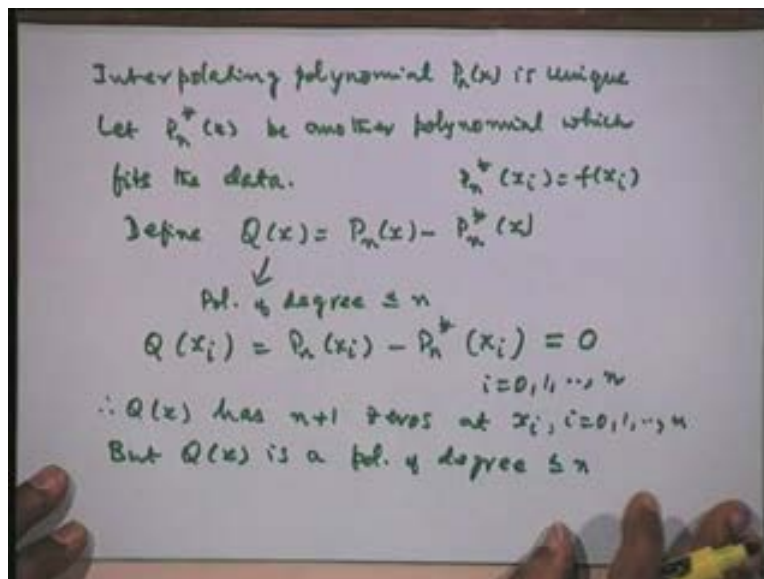 Interpolating polynomial Pₙ(x) is unique
Let Pₙ*(x) be another polynomial which
fits the data. Pₙ*(xᵢ) = f(xᵢ)
Define Q(x) = Pₙ(x) - Pₙ*(x)
↓
Pol. of degree ≤ n
Q(xᵢ) = Pₙ(xᵢ) - Pₙ*(xᵢ) = 0
i=0,1,..,n
∴ Q(x) has n+1 zeros at xᵢ, i=0,1,..,n
But Q(x) is a pol. of degree ≤ n